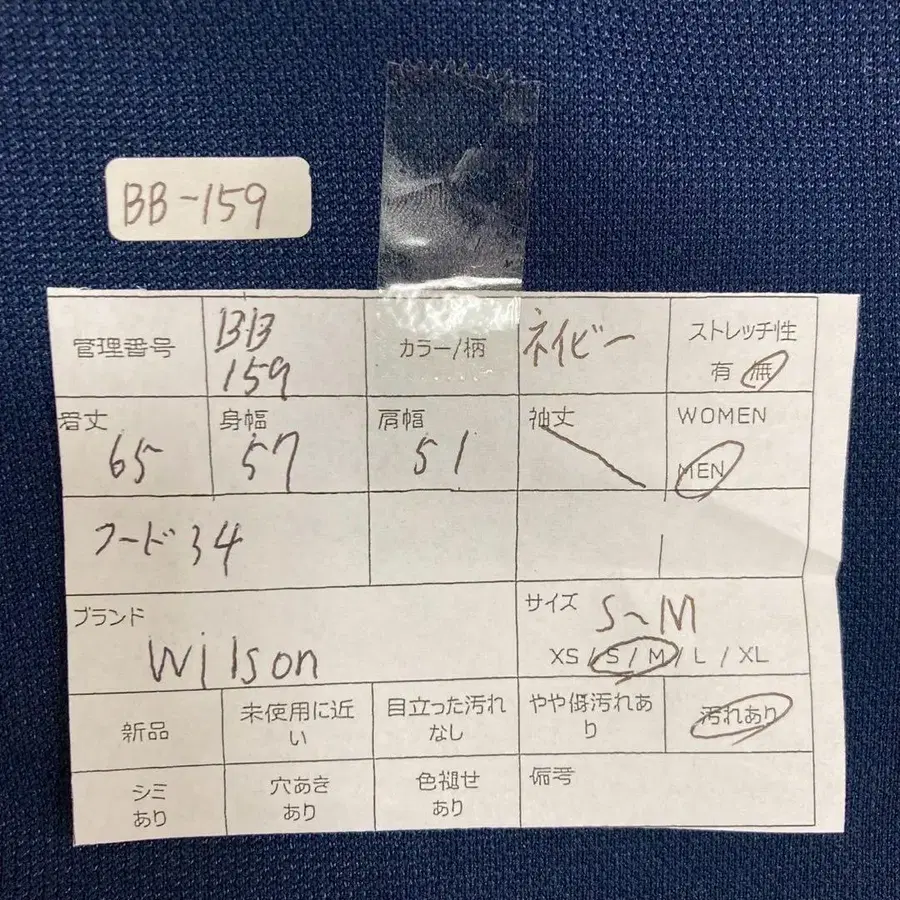 BB-159
管理番号
BB
159
カラー/柄
ネイビー
ストレッチ性
有 無
着丈
65
身幅
57
肩幅
51
袖丈
WOMEN
MEN
フード34
ブランド
Wilson
サイズ
S~M
XS / S / M / L / XL
新品
未使用に近
い
目立った汚れ
なし
やや傷汚れあ
り
汚れあり
シミ
あり
穴あき
あり
色褪せ
あり
備考